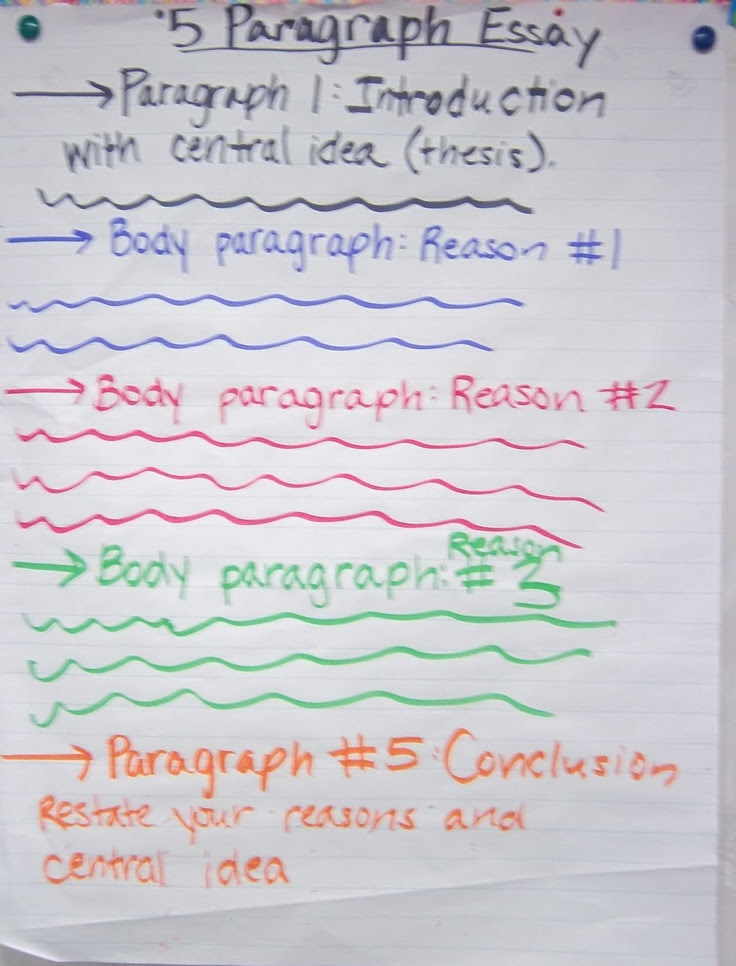 5 Paragraph Essay
→ Paragraph 1: Introduction
with central idea (thesis).
→ Body paragraph: Reason #1
→ Body paragraph: Reason #2
→ Body paragraph: Reason #3
→ Paragraph #5: Conclusion
Restate your reasons and
central idea